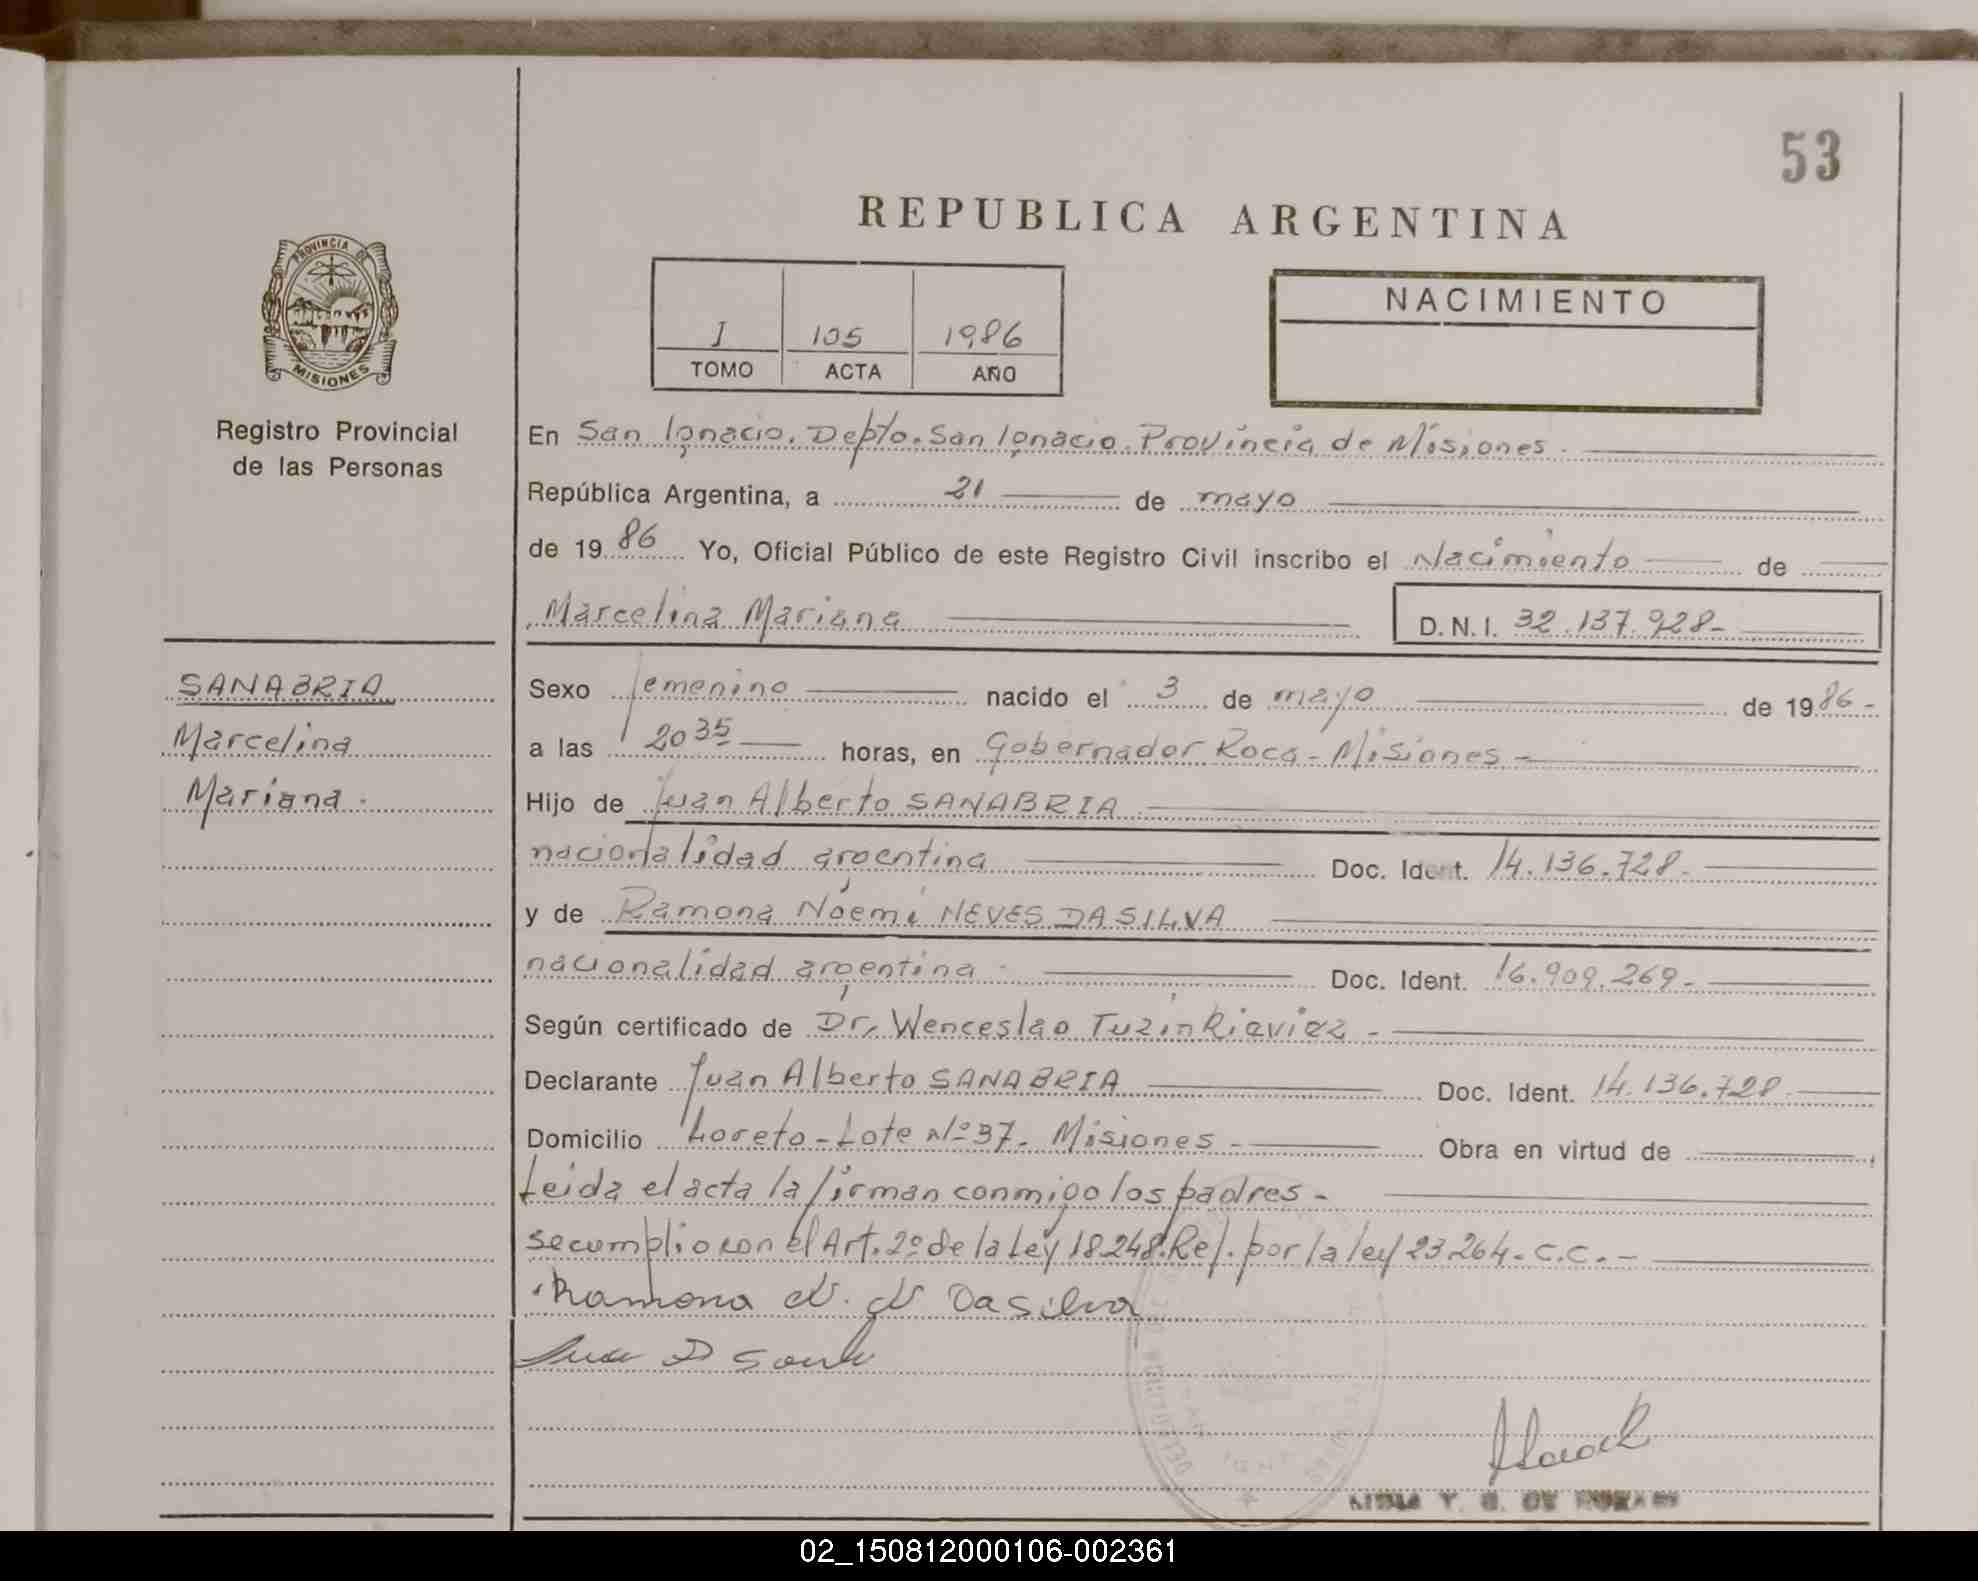 53
REPUBLICA ARGENTINA
PROVINCIA DE
MISIONES
Registro Provincial
de las Personas
I 105 1986
TOMO ACTA AÑO
NACIMIENTO
En San Ignacio. Depto. San Ignacio. Provincia de Misiones.
República Argentina, a 21 de mayo
de 1986 Yo, Oficial Público de este Registro Civil inscribo el Nacimiento de
Marcelina Mariana D.N.I. 32.137.928-
SANABRIA
Marcelina
Mariana.
Sexo femenino nacido el 3 de mayo de 1986-
a las 20 35 horas, en Gobernador Roca - Misiones -
Hijo de Juan Alberto SANABRIA
nacionalidad argentina Doc. Ident. 14.136.728-
y de Ramona Noemi NEVES DA SILVA
nacionalidad argentina. Doc. Ident. 16.909.269-
Según certificado de Dr. Wenceslao -
Declarante Juan Alberto SANABRIA Doc. Ident. 14.136.728
Domicilio Loreto - Lote Nº 37- Misiones - Obra en virtud de
Leida el acta la firman conmigo los padres -
se cumplio con el Art. 2º de la Ley 18.248. Ref. por la ley 23.264. C.C. -
Ramona N. N Dasilva
02_150812000106-002361